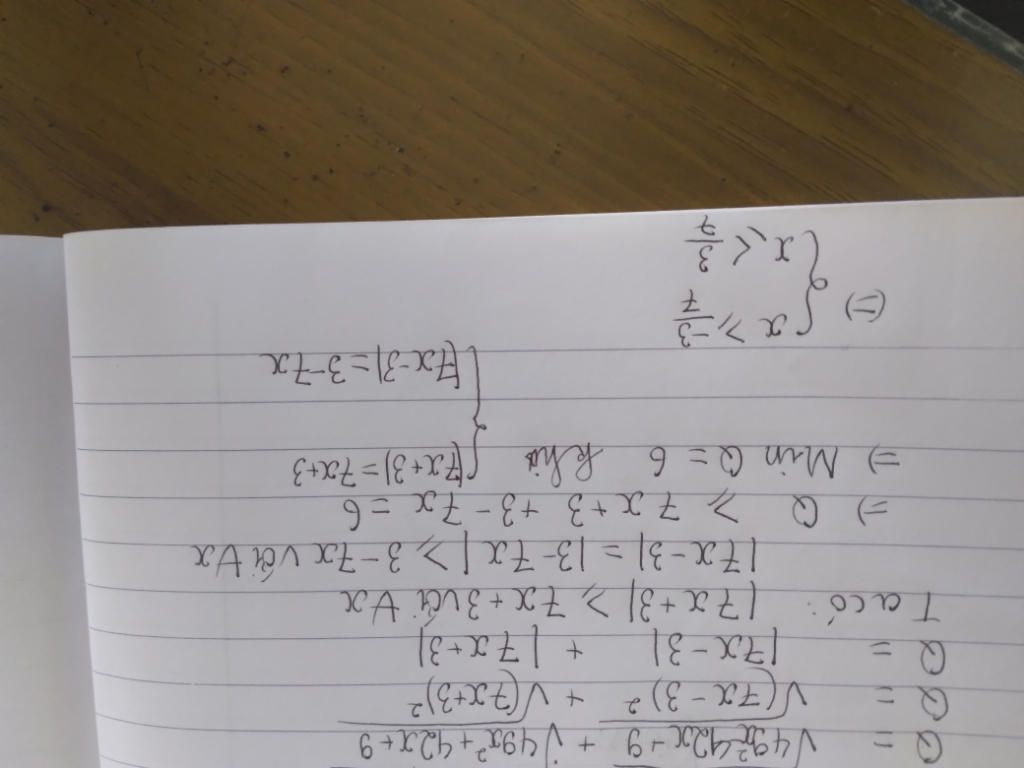 Q = √49x²-42x+9 + √49x²+42x+9
Q = √(7x-3)² + √(7x+3)²
Q = |7x-3| + |7x+3|
Ta có: |7x+3| ≥ 7x+3 với ∀x
|7x-3| = |3-7x| ≥ 3-7x với ∀x
=) Q ≥ 7x+3+3-7x = 6
=) Min Q = 6 khi { |7x+3| = 7x+3
|7x-3| = 3-7x
(=) { x ≥ -3/7
x ≤ 3/7